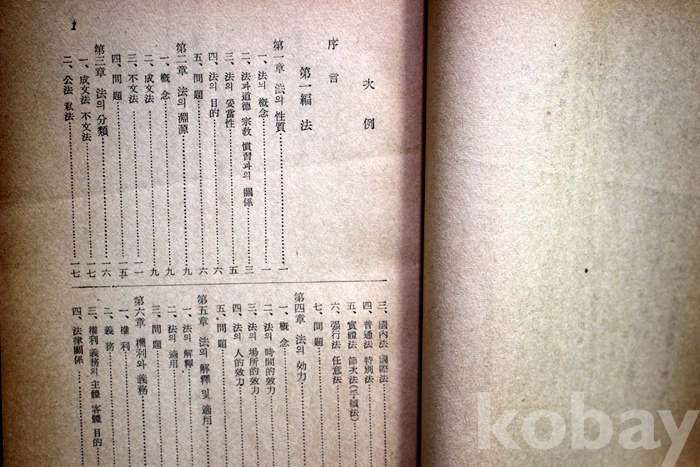 次例
序言
第一編 法
第一章 法의 性質 一
一、法의 概念 一
二、法과 道德 宗教 慣習과의 關係 三
三、法의 妥當性 五
四、法의 目的 六
五、問題 六
第二章 法의 淵源 九
一、概念 九
二、成文法 九
三、不文法 一一
四、問題 一五
第三章 法의 分類 一六
一、成文法 不文法 一七
二、公法 私法 一七
三、國內法 國際法
四、普通法 特別法
五、實體法 節次法(手續法)
六、强行法 任意法
七、問題
第四章 法의 効力
一、概念
二、法의 時間的效力
三、法의 場所的效力
四、法의 人的效力
五、問題
第五章 法의 解釋 및 適用
一、法의 解釋
二、法의 適用
三、問題
第六章 權利와 義務
一、權利
二、義務
三、權利 義務의 主體 客體 目的
四、法律關係
1
kobay